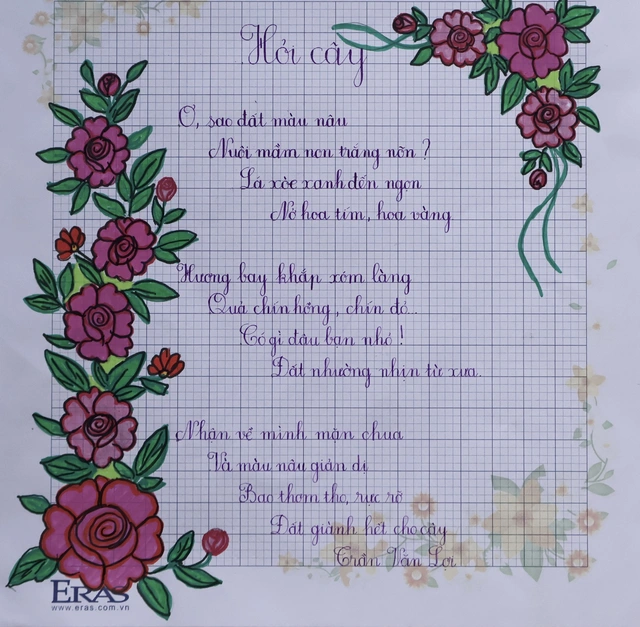 Hỏi cây
Ơ, sao đất màu nâu
Nuôi mầm non trắng nõn ?
Lá xòe xanh đến ngọn
Nở hoa tím, hoa vàng
Hương bay khắp xóm làng
Quả chín hồng, chín đỏ..
Có gì đâu bạn nhỏ !
Đất nhường nhịn từ xưa.
Nhận về mình mặn chua
Và màu nâu giản dị
Bao thơm tho, rực rỡ
Đất giành hết cho cây
Trần Văn Lợi
ERAS
www.eras.com.vn